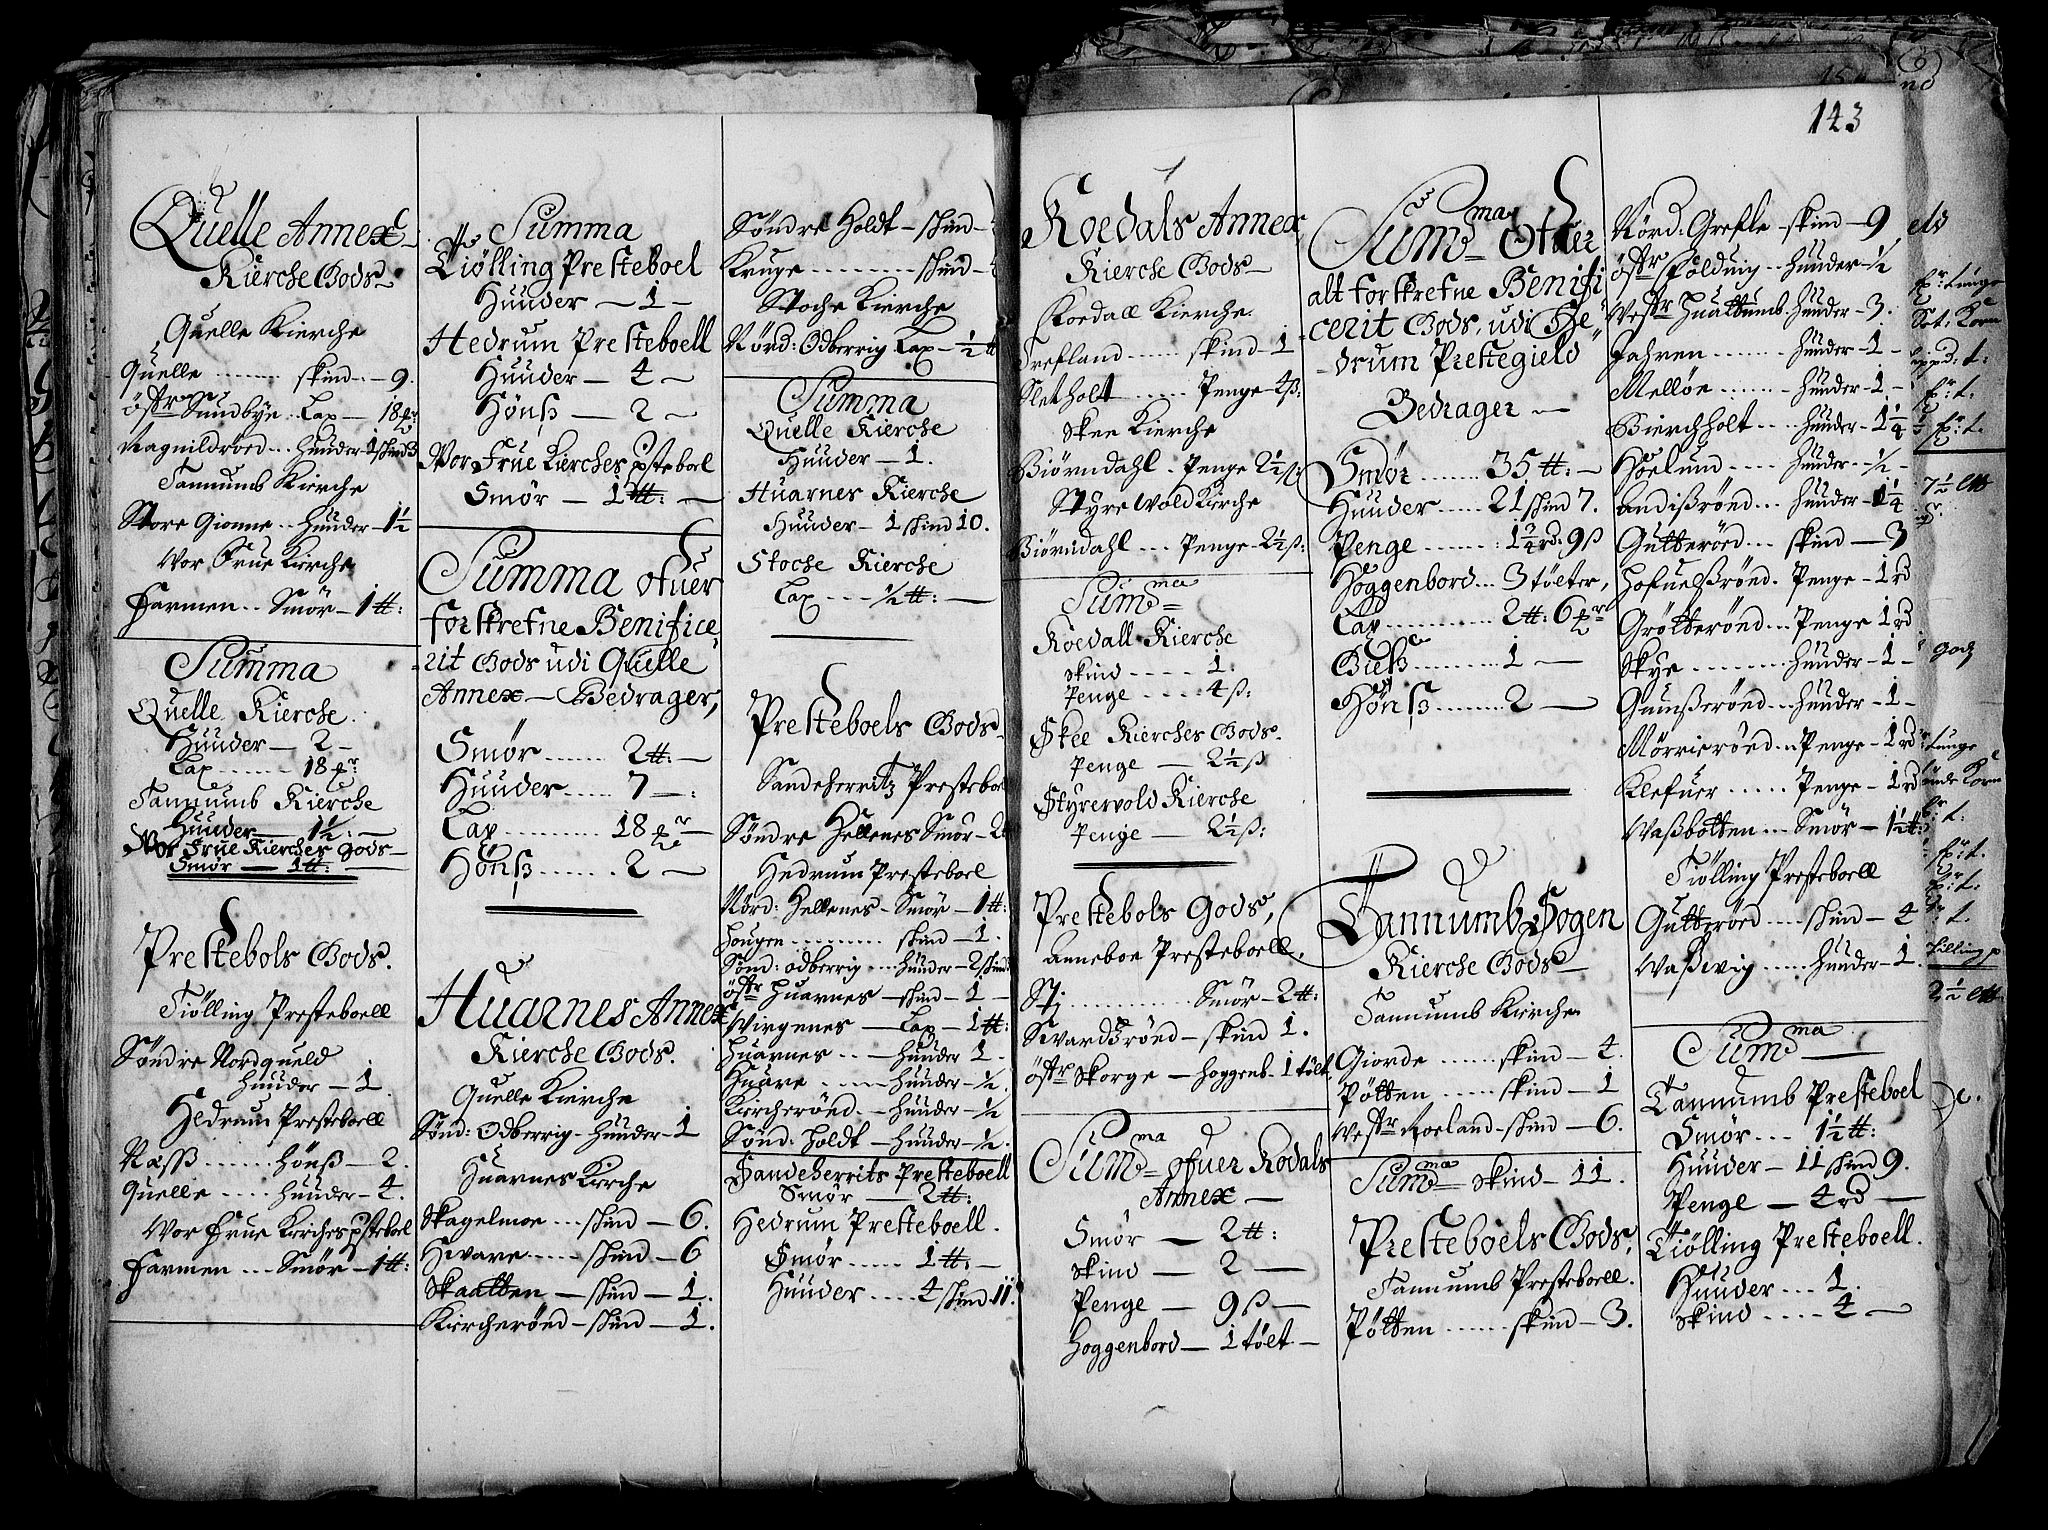 Quelle Annex
Kierche Gods
Quelle Kierche
Quelle skind 9.
østr Sundbye Lax 18
Ragnildroed Huuder 1 skind 3
Tannumb Kierche
Store Gionne Huuder 1½
Vor Frue Kierche
Farmen Smør 1 tt:
Summa
Quelle Kierche.
Huuder 2
Lax 18
Tannumb Kierche
Huuder 1½
Vor Frue Kierches gods
Smør 1 tt:
Prestebols Gods.
Tiølling Presteboell
Søndre Nordqueld
Huuder 1
Hedrum Presteboell
Næss Hønß 2.
Quelle Huuder 4.
Vor Frue Kirches pstebol
Farmen Smør 1 tt:
Summa
Tiølling Presteboel
Huuder 1
Hedrum Presteboell
Huuder 4
Hønß 2
Vor Frue Kierches psteboel
Smør 1 tt:
Summa ofuer
forskrefne Benifice
rit Gods udi Quelle
Annex Bedrager,
Smør 2 tt:
Huuder 7
Lax 18
Hønß 2
Huarnes Annex
Kierche Gods.
Quelle Kierche
Sønd: Odberrig Huuder 1
Huarnes Kirche
Skagelmoe skind 6.
Hvare skind 6
Skaatten skind 1.
Kircherønd skind 1.
Søndre Holdt skind
Kruge skind
Stoche Kierche
Nørd: Odberrig Lax ½ tt
Summa
Quelle Kierche
Huuder 1.
Huarnes Kierche
Huuder 1 skind 10.
Stoche Kierche
Lax ½ tt:
Presteboels Gods
Sandeherritz Presteboel
Søndre Hellenes Smør 2
Hedrum Presteboel
Nørd: Hellenes Smør 1 tt:
Hougen skind 1.
Sønd: odberrig Huuder 2 skind
østr Huarnes skind 1
Virgenes Lax 1 tt:
Huarnes Huuder 1
Huare Huuder ½
Kircherønd Huuder ½
Sønd: Holdt Huuder ½.
Sandeherrits Presteboell
Smør 2 tt:
Hedrum Presteboell.
Smør 1 tt:
Huuder 4 skind 11.
123
Koedals Annex
Kierche Gods
Koedall Kierche
Trefland skind 1
Sletholt Penge 4 ß:
Skee Kierche
Biørndahl Penge 2½ ß:
Styrevold Kirche
Biørndahl Penge 2½ ß:
Sumᵐᵃ
Koedall Kierche
skind 1.
Penge 4 ß:
Skee Kierches Gods.
Penge 2½ ß
Styrervold Kirche
Penge 2½ ß:
Prestebols Gods,
Anneboe Presteboell.
Smør 2 tt:
Svardsrønd skind 1.
østr Skorge Hoggenb. 1 tølt
Sumᵐᵃ ofuer Kodals
Annex
Smør 2 tt:
Skind 2
Penge 9 ß
Hoggenbord 1 tølt
Sumᵐᵃ Ofuer
alt forskrefne Benifi
cerit Gods, udi He
drum Prestegield
Bedrager
Smør 35 tt:
Huuder 21 skind 7.
Penge 1¾ rd: 9 ß
Hoggenbord 3 tølter,
Lax 2 tt: 6
Gieß 1
Hønß 2
Tannumb Sogen
Kierche Gods
Tannumb Kirche
Giorde skind 4.
Pøtten skind 1
Vestr Roeland skind 6.
Sumᵐᵃ skind 11.
Presteboels Gods,
Tannumb Presteboell.
Pøtten skind 3.
Nørd. Grefle skind 9
østr Folduig Huuder ½
Vestr Hualtumb. Huuder 3.
Jahren Huuder 1
Melløe Huuder 1.
Bierchholt Huuder 1¼
Hoelund Huuder ½
Andißrønd Huuder 1¼
Gutterøed skind 3
Hofuelßrønd. Penge 1 rd
Grøtterønd Penge 1 rd
Skye Huuder 1
Gunßerønd Huuder 1
Mørrierønd Penge 1 rd
Klefuer Penge 1 rd
Vaßbotten Smør 1½ tt:
Tiølling Presteboell
Gutterøed skind 4
Vaßvig Huuder 1.
Sumᵐᵃ
Tannumb Presteboel
Smør 1½ tt:
Huuder 11 skind 9.
Penge 4 rd
Tiølling Presteboell.
Huuder 1.
skind 4